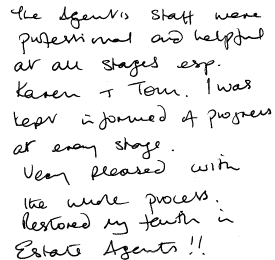 The Agent's staff were
professional and helpful
at all stages esp.
Karen + Tom. I was
kept informed of progress
at every stage.
Very pleased with
the whole process.
Restored my faith in
Estate Agents!!